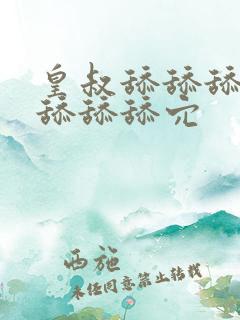 皇叔舔舔舔
舔舔舔穴
西施
未经同意禁止转载